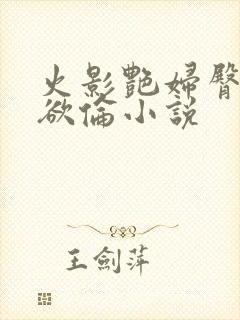 火影艷婦臀
欲倫小説
王劍萍